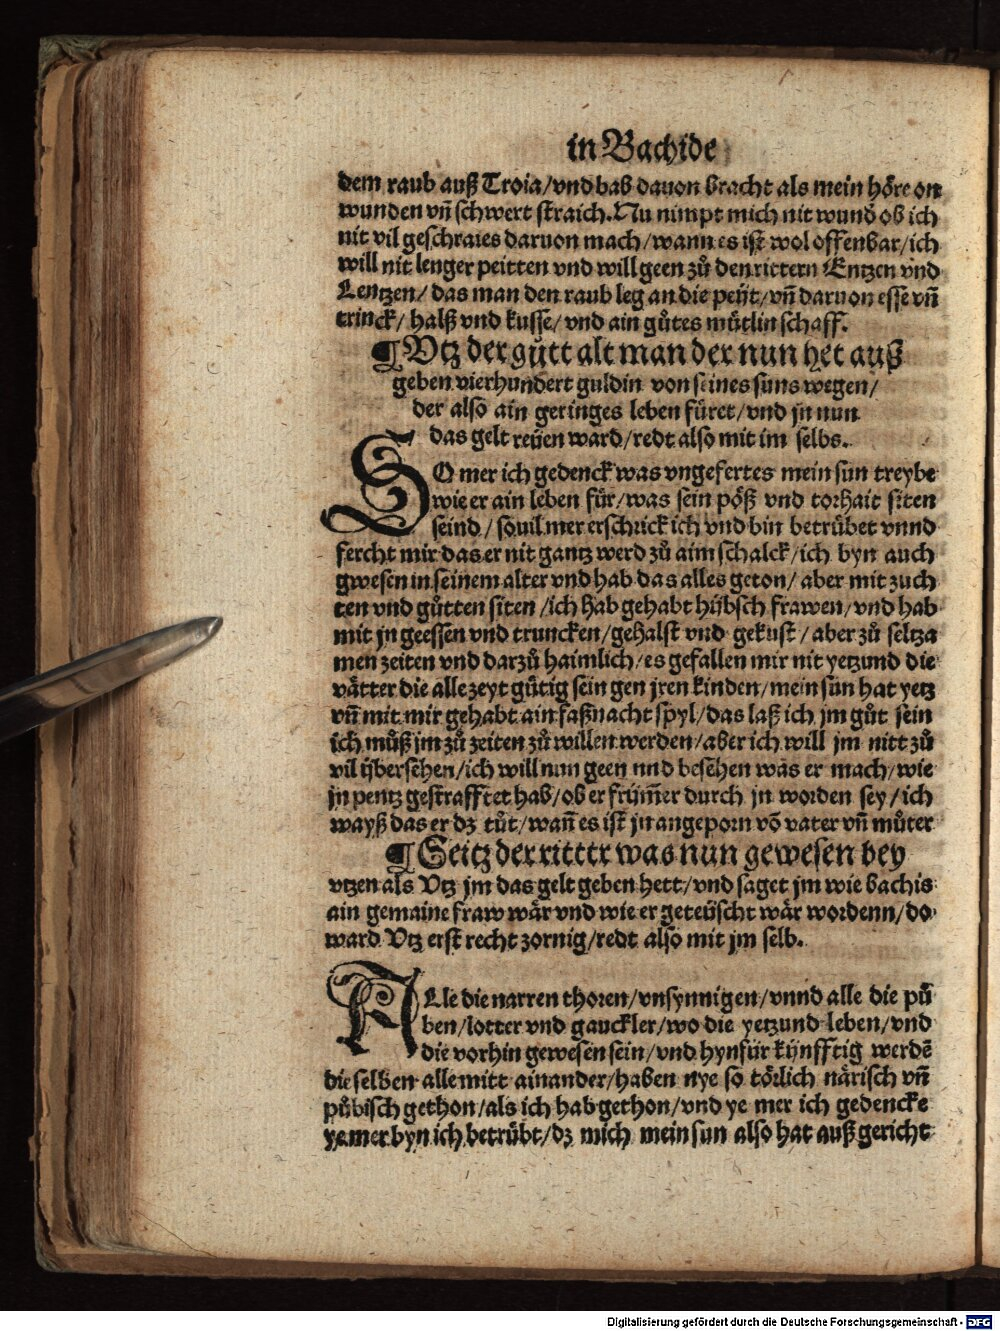 in Bachide
dem raub auß Troia/vnd hab dauon bracht als mein hőre on
wunden vñ schwert straich. Nu nimpt mich nit wund ob ich
nit vil geschraies daruon mach/wann es ist wol offenbar/ich
will nit lenger peitten vnd will geen zů den rittern Entzen vnd
Lentzen/ das man den raub leg an die peÿt/vñ daruon esse vñ
trinck/ halß vnd kusse/vnd ain gůtes můtlin schaff.
¶Vtz der gůtt alt man der nun het auß
geben vierhundert guldin von seines suns wegen/
der also ain geringes leben fůret/vnd jn nun
das gelt reüen ward/redt also mit im selbs.
SO mer ich gedenck was vngefertes mein sun treybe
wie er ain leben für/was sein pőß vnd torhait siten
seind/souil mer erschrick ich vnd bin betrübet vnnd
fercht mir das er nit gantz werd zů aim schalck/ich byn auch
gwesen in seinem alter vnd hab das alles geton/aber mit zuch
ten vnd gůtten siten/ich hab gehabt hübsch frawen/vnd hab
mit jn geessen vnd truncken/gehalst vnd gekust/aber zů seltza
men zeiten vnd darzů haimlich/es gefallen mir nit yetzund die
vätter die allezeyt gütig sein gen jren kinden/mein sun hat yetz
vñ mit mir gehabt ain faßnacht spyl/das laß ich jm gůt sein
ich můß jm zů zeiten zů willen werden/aber ich will jm nitt zů
vil übersehen/ich will nun geen nnd besehen was er mach/wie
jn pentz gestrafftet hab/ob er frümer durch jn worden sey/ich
wayß das er dz tůt/wañ es ist jn angeporn võ vater vñ můter
¶Seitz der ritter was nun gewesen bey
vtzen als Vtz jm das gelt geben hett/vnd saget jm wie bachis
ain gemaine fraw wär vnd wie er geteüscht wär wordenn/do
ward Vtz erst recht zornig/redt also mit jm selb.
ALle die narren thoren/vnsynnigen/vnnd alle die pů
ben/lotter vnd gauckler/wo die yetzund leben/vnd
die vorhin gewesen sein/vnd hynfür künfftig werdẽ
die selben alle mitt ainander/haben nye so tőrlich närisch vñ
půbisch gethon/als ich hab gethon/vnd ye mer ich gedencke
ye mer byn ich betrübt/dz mich mein sun also hat auß gericht
Digitalisierung gefördert durch die Deutsche Forschungsgemeinschaft - DFG